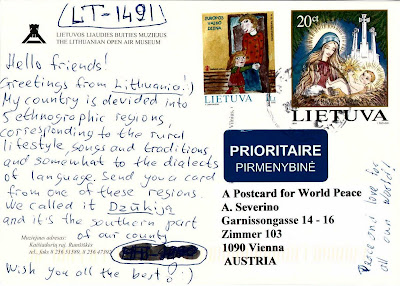 LT-1491
LIETUVOS LIAUDIES BUITIES MUZIEJUS
THE LITHUANIAN OPEN AIR MUSEUM
Hello friends!
Greetings from Lithuania! :)
My country is devided into
5 ethnographic regions,
corresponding to the rural
lifestyle, songs and traditions
and somewhat to the dialects
of language. Send you a card
from one of these regions.
We called it Dzūkija
and it's the southern part
of our county
Muziejaus adresas:
Wish you all the best! :)
EUROPOS
VAIKO
DIENA
LIETUVA
20ct
LIETUVA
PRIORITAIRE
PIRMENYBINĖ
A Postcard for World Peace
A. Severino
Garnissongasse 14 - 16
Zimmer 103
1090 Vienna
AUSTRIA
Peace and love for
all our world!